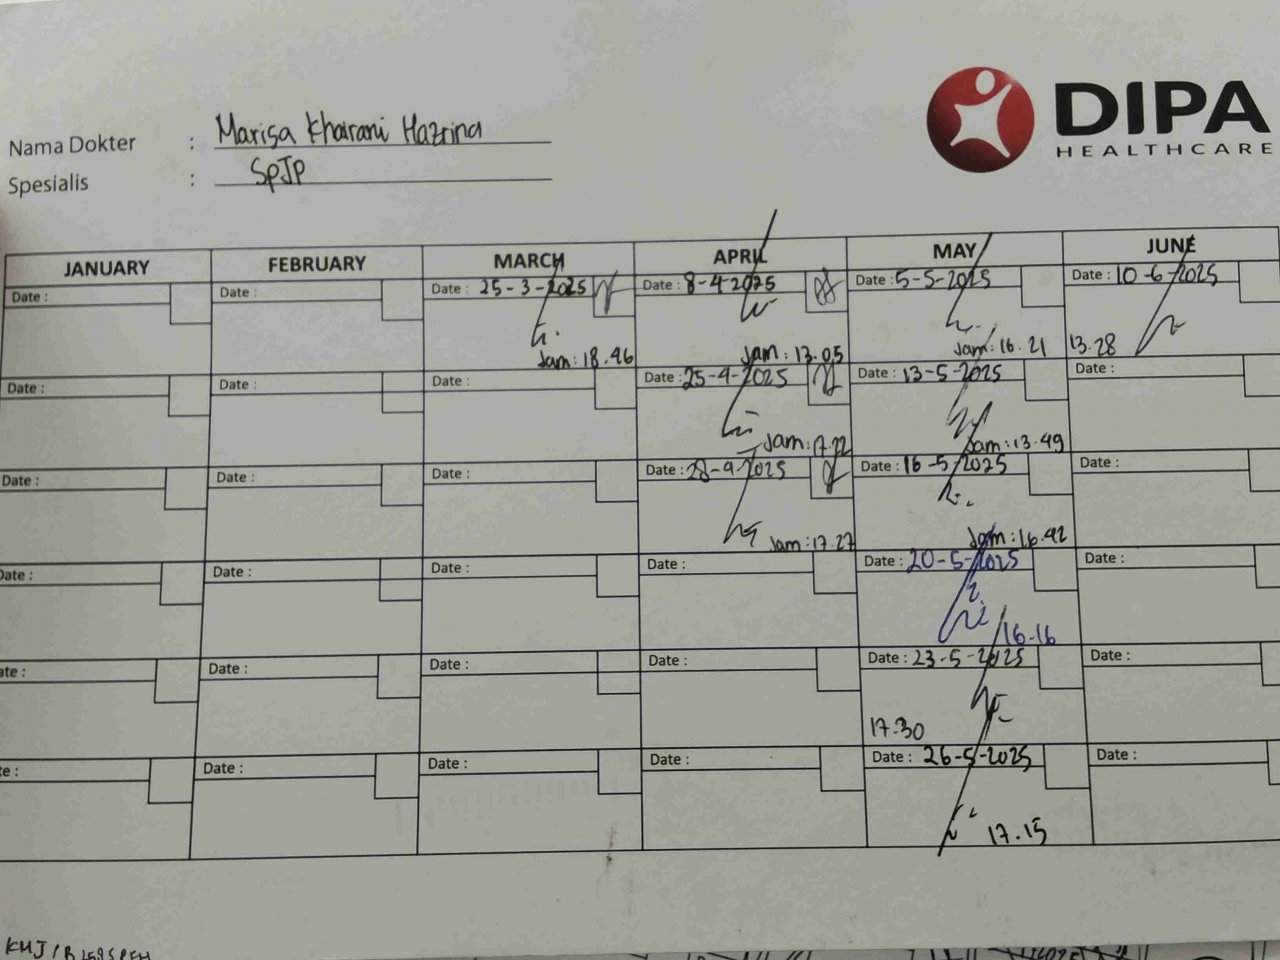 DIPA
HEALTHCARE
Nama Dokter : Marisa Khairani Hazrina
Spesialis : SpJP
JANUARY FEBRUARY MARCH APRIL MAY JUNE
Date : Date : Date : 25-3-2025 Date : 8-4-2025 Date : 5-5-2025 Date : 10-6-2025
Jam: 18.46 Jam: 13.05 Jam: 16.21 13.28
Date : Date : Date : Date : 25-4-2025 Date : 13-5-2025 Date :
Jam: 17.22 Jam: 13.49
Date : Date : Date : Date : 28-4-2025 Date : 16-5-2025 Date :
Jam: 17.27 Jam: 16.42
Date : Date : Date : Date : Date : 20-5-2025 Date :
16-16
ate : Date : Date : Date : Date : 23-5-2025 Date :
17.30
te : Date : Date : Date : Date : 26-5-2025 Date :
17.15